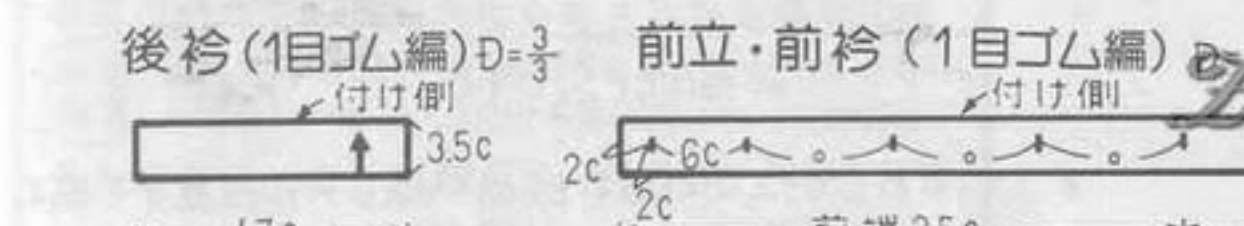 後衿(1目ゴム編)D=3/3
付け側
3.5c
前立・前衿(1目ゴム編)
付け側
2c
6c
2c